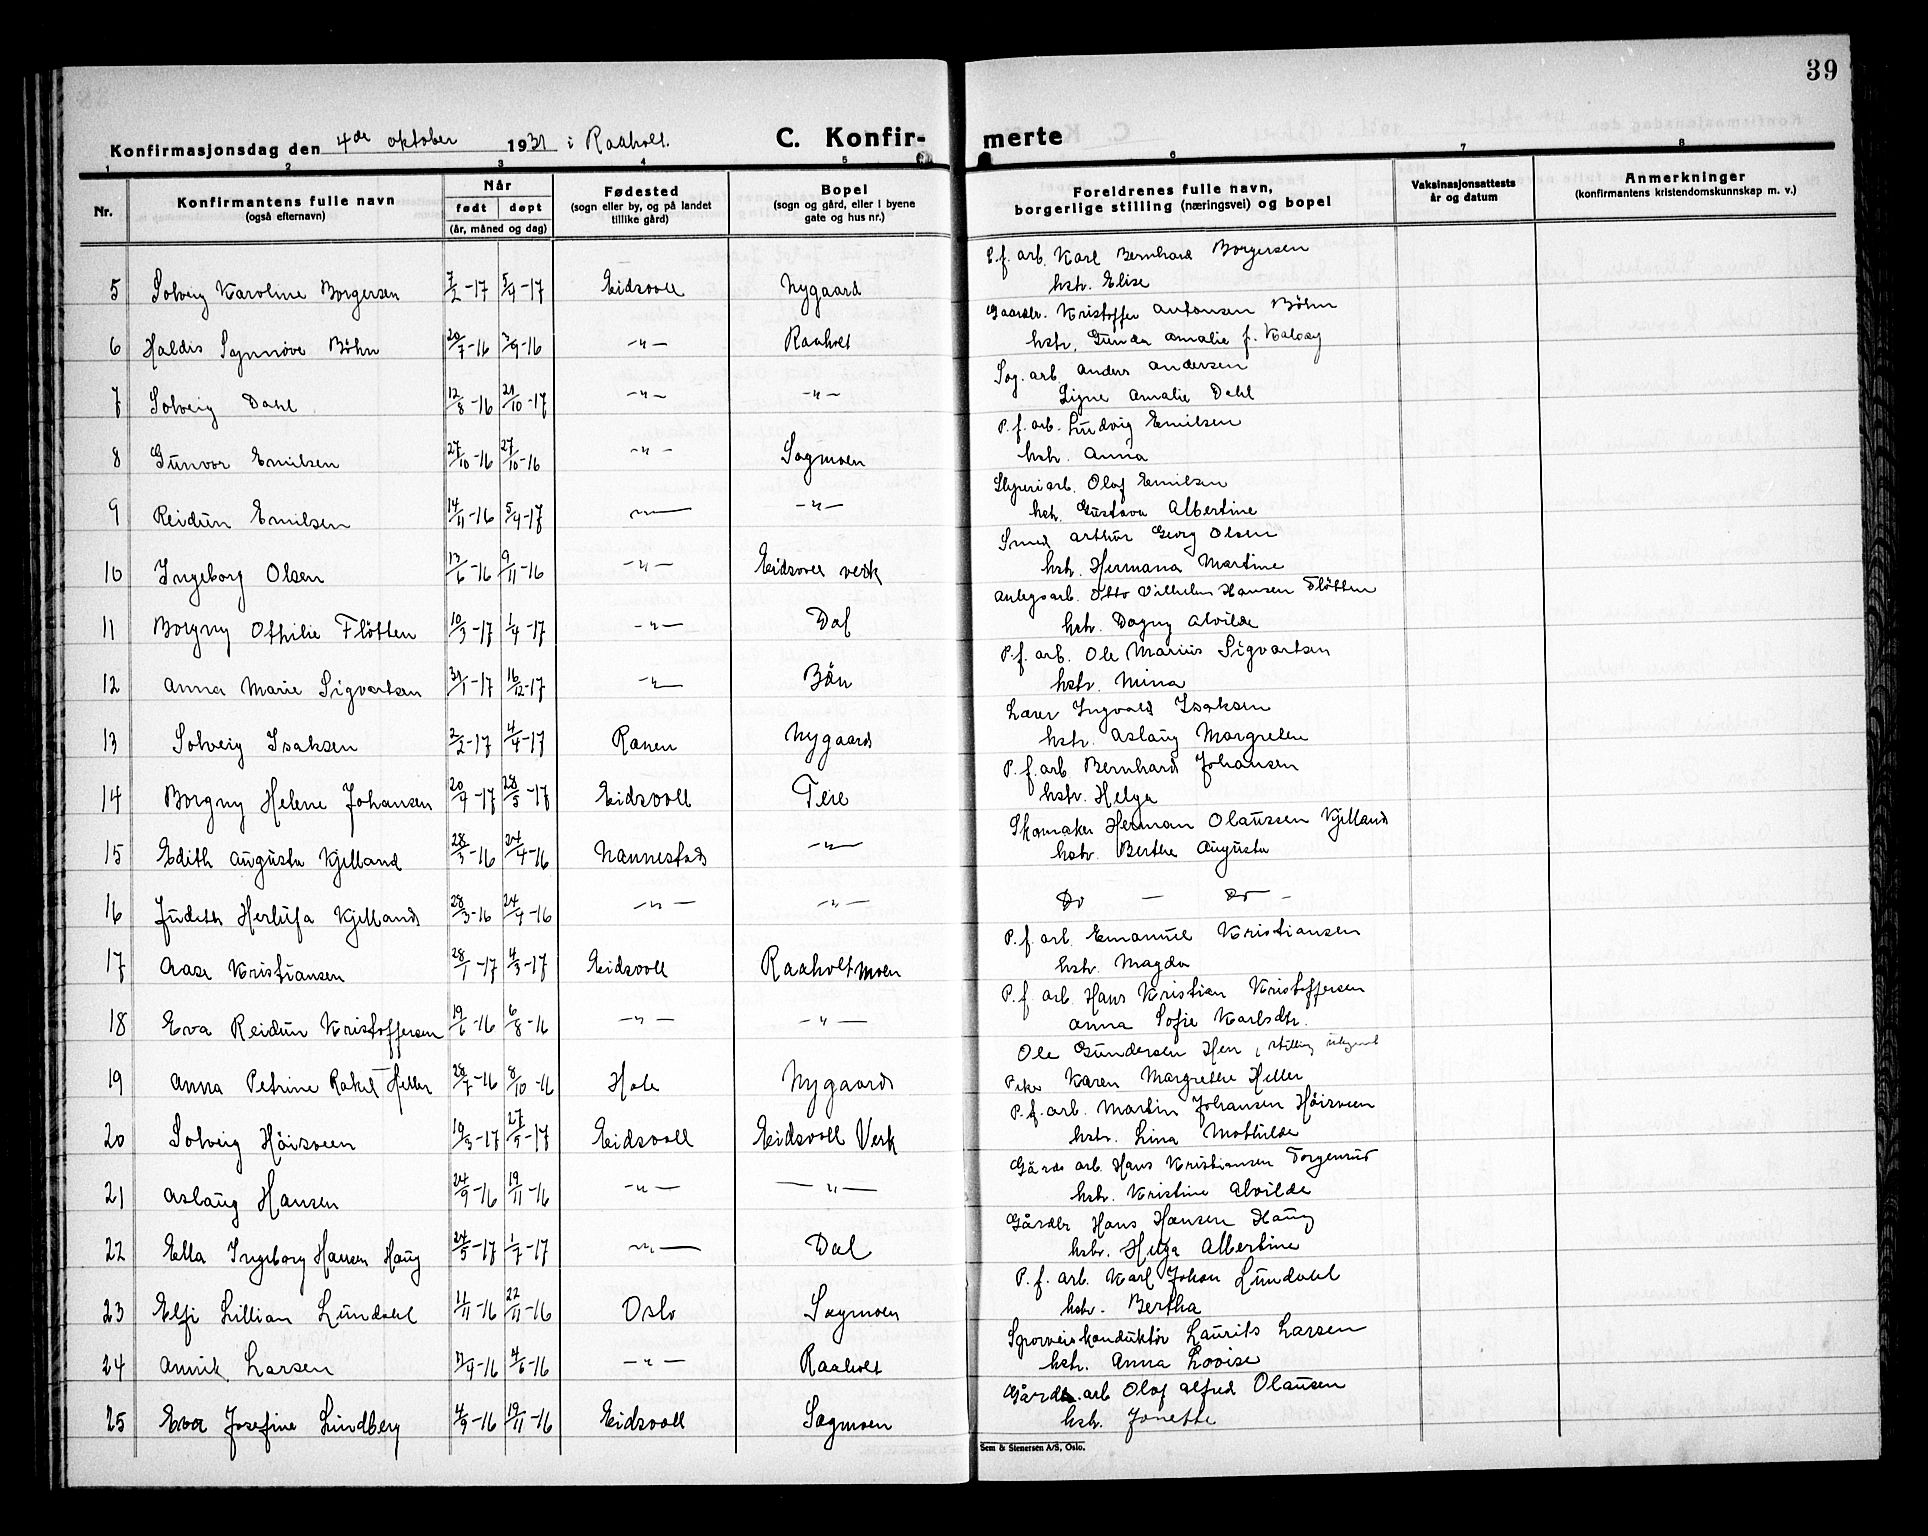 39
Konfirmasjonsdag den 4de oktober 1931 i Raaholt. C. Konfir- merte
1 2 3 4 5 6 7 8
Nr. Konfirmantens fulle navn (også efternavn) Når født døpt (år, måned og dag) Fødested (sogn eller by, og på landet tillike gård) Bopel (sogn og gård, eller i byene gate og hus nr.) Foreldrenes fulle navn, borgerlige stilling (næringsvei) og bopel Vaksinasjonsattests år og datum Anmerkninger (konfirmantens kristendomskunnskap m. v.)
P.f. arb. Karl Bernhard Borgersen
5 Solveig Karoline Borgersen 7/2-17 5/4-17 Eidsvoll Nygaard hstr. Elise
Gaardbr. Kristoffer Antonsen Böhn
6 Haldis Synnöve Böhn 20/7-16 -16 -"- Raaholt hstr. Gunda Amalie f.
Sag. arb. Anders Andersen
7 Solveig Dahl 12/8-16 29/10-17 -"- -"- Signe Amalie Dahl
P.f. arb. Ludvig Emilsen
8 Gunvor Emilsen 27/10-16 27/10-16 -"- Sagmoen hstr. Anna
Sliperiarb. Olaf Emilsen
9 Reidun Emilsen 14/11-16 5/4-17 -"- -"- hstr. Gustava Albertine
Smed Arthur Georg Olsen
10 Ingeborg Olsen 13/6-16 9/11-16 -"- Eidsvoll verk hstr. Hermana Martine
Anlegsarb. Otto Vilhelm Hansen Flötten
11 Borgny Othilie Flötten 10/3-17 1/4-17 -"- Dal hstr. Dagny Alvilde
P.f. arb. Ole Marius Sigvartsen
12 Anna Marie Sigvartsen 31/1-17 16/12-17 -"- Bön hstr. Mina
Lærer Ingvald Isaksen
13 Solveig Isaksen 2/2-17 4/4-17 Ranen Nygaard hstr. Aslaug Margrethe
P.f. arb Bernhard Johansen
14 Borgny Helene Johansen 20/4-17 28/5-17 Eidsvoll Teie hstr. Helga
Skomaker Herman Olaussen Kjelland
15 Edith Augusta Kjelland 28/3-16 24/4-16 Nannestad -"- hstr. Berthe Augusta
16 Judith Herlufa Kjelland 28/3-16 24/4-16 -"- -"- Do - Do -
P.f. arb. Emanuel Kristiansen
17 Aase Kristiansen 28/1-17 4/3-17 Eidsvoll Raaholtmoen hstr. Magda
P.f. arb. Hans Kristian Kristoffersen
18 Eva Reidun Kristoffersen 19/6-16 6/8-16 -"- -"- Anna Sofie Karlsdtr.
Ole Gundersen Hen, stilling
19 Anna Petrine Rakel Heller 28/7-16 8/10-16 Hole Nygaard Pike Karen Margrethe Heller
P.f. arb. Martin Johansen Höisveen
20 Solveig Höisveen 19/3-17 27/5-17 Eidsvoll Eidsvoll Verk hstr. Lina Mathilde
Gårds arb. Hans Kristiansen Torgenrud
21 Aslaug Hansen 24/9-16 19/11-16 -"- -"- hstr. Kristine Alvilde
Gårdbr Hans Hansen Haug
22 Ella Ingeborg Hansen Haug 24/5-17 1/7-17 -"- Dal hstr. Helga Albertine
P.f. arb. Karl Johan Lundahl
23 Elfi Lillian Lundahl 11/11-16 22/11-16 Oslo Sagmoen hstr. Bertha
Sporveiskonduktör Laurits Larsen
24 Annik Larsen 11/4-16 4/6-16 -"- Raaholt hstr. Anna Lovise
Gårds.arb Olaf Alfred Olausen
25 Eva Josefine Lindberg 4/9-16 19/11-16 Eidsvoll Sagmoen hstr. Jonette
Sem & Stenersen A/S, Oslo.